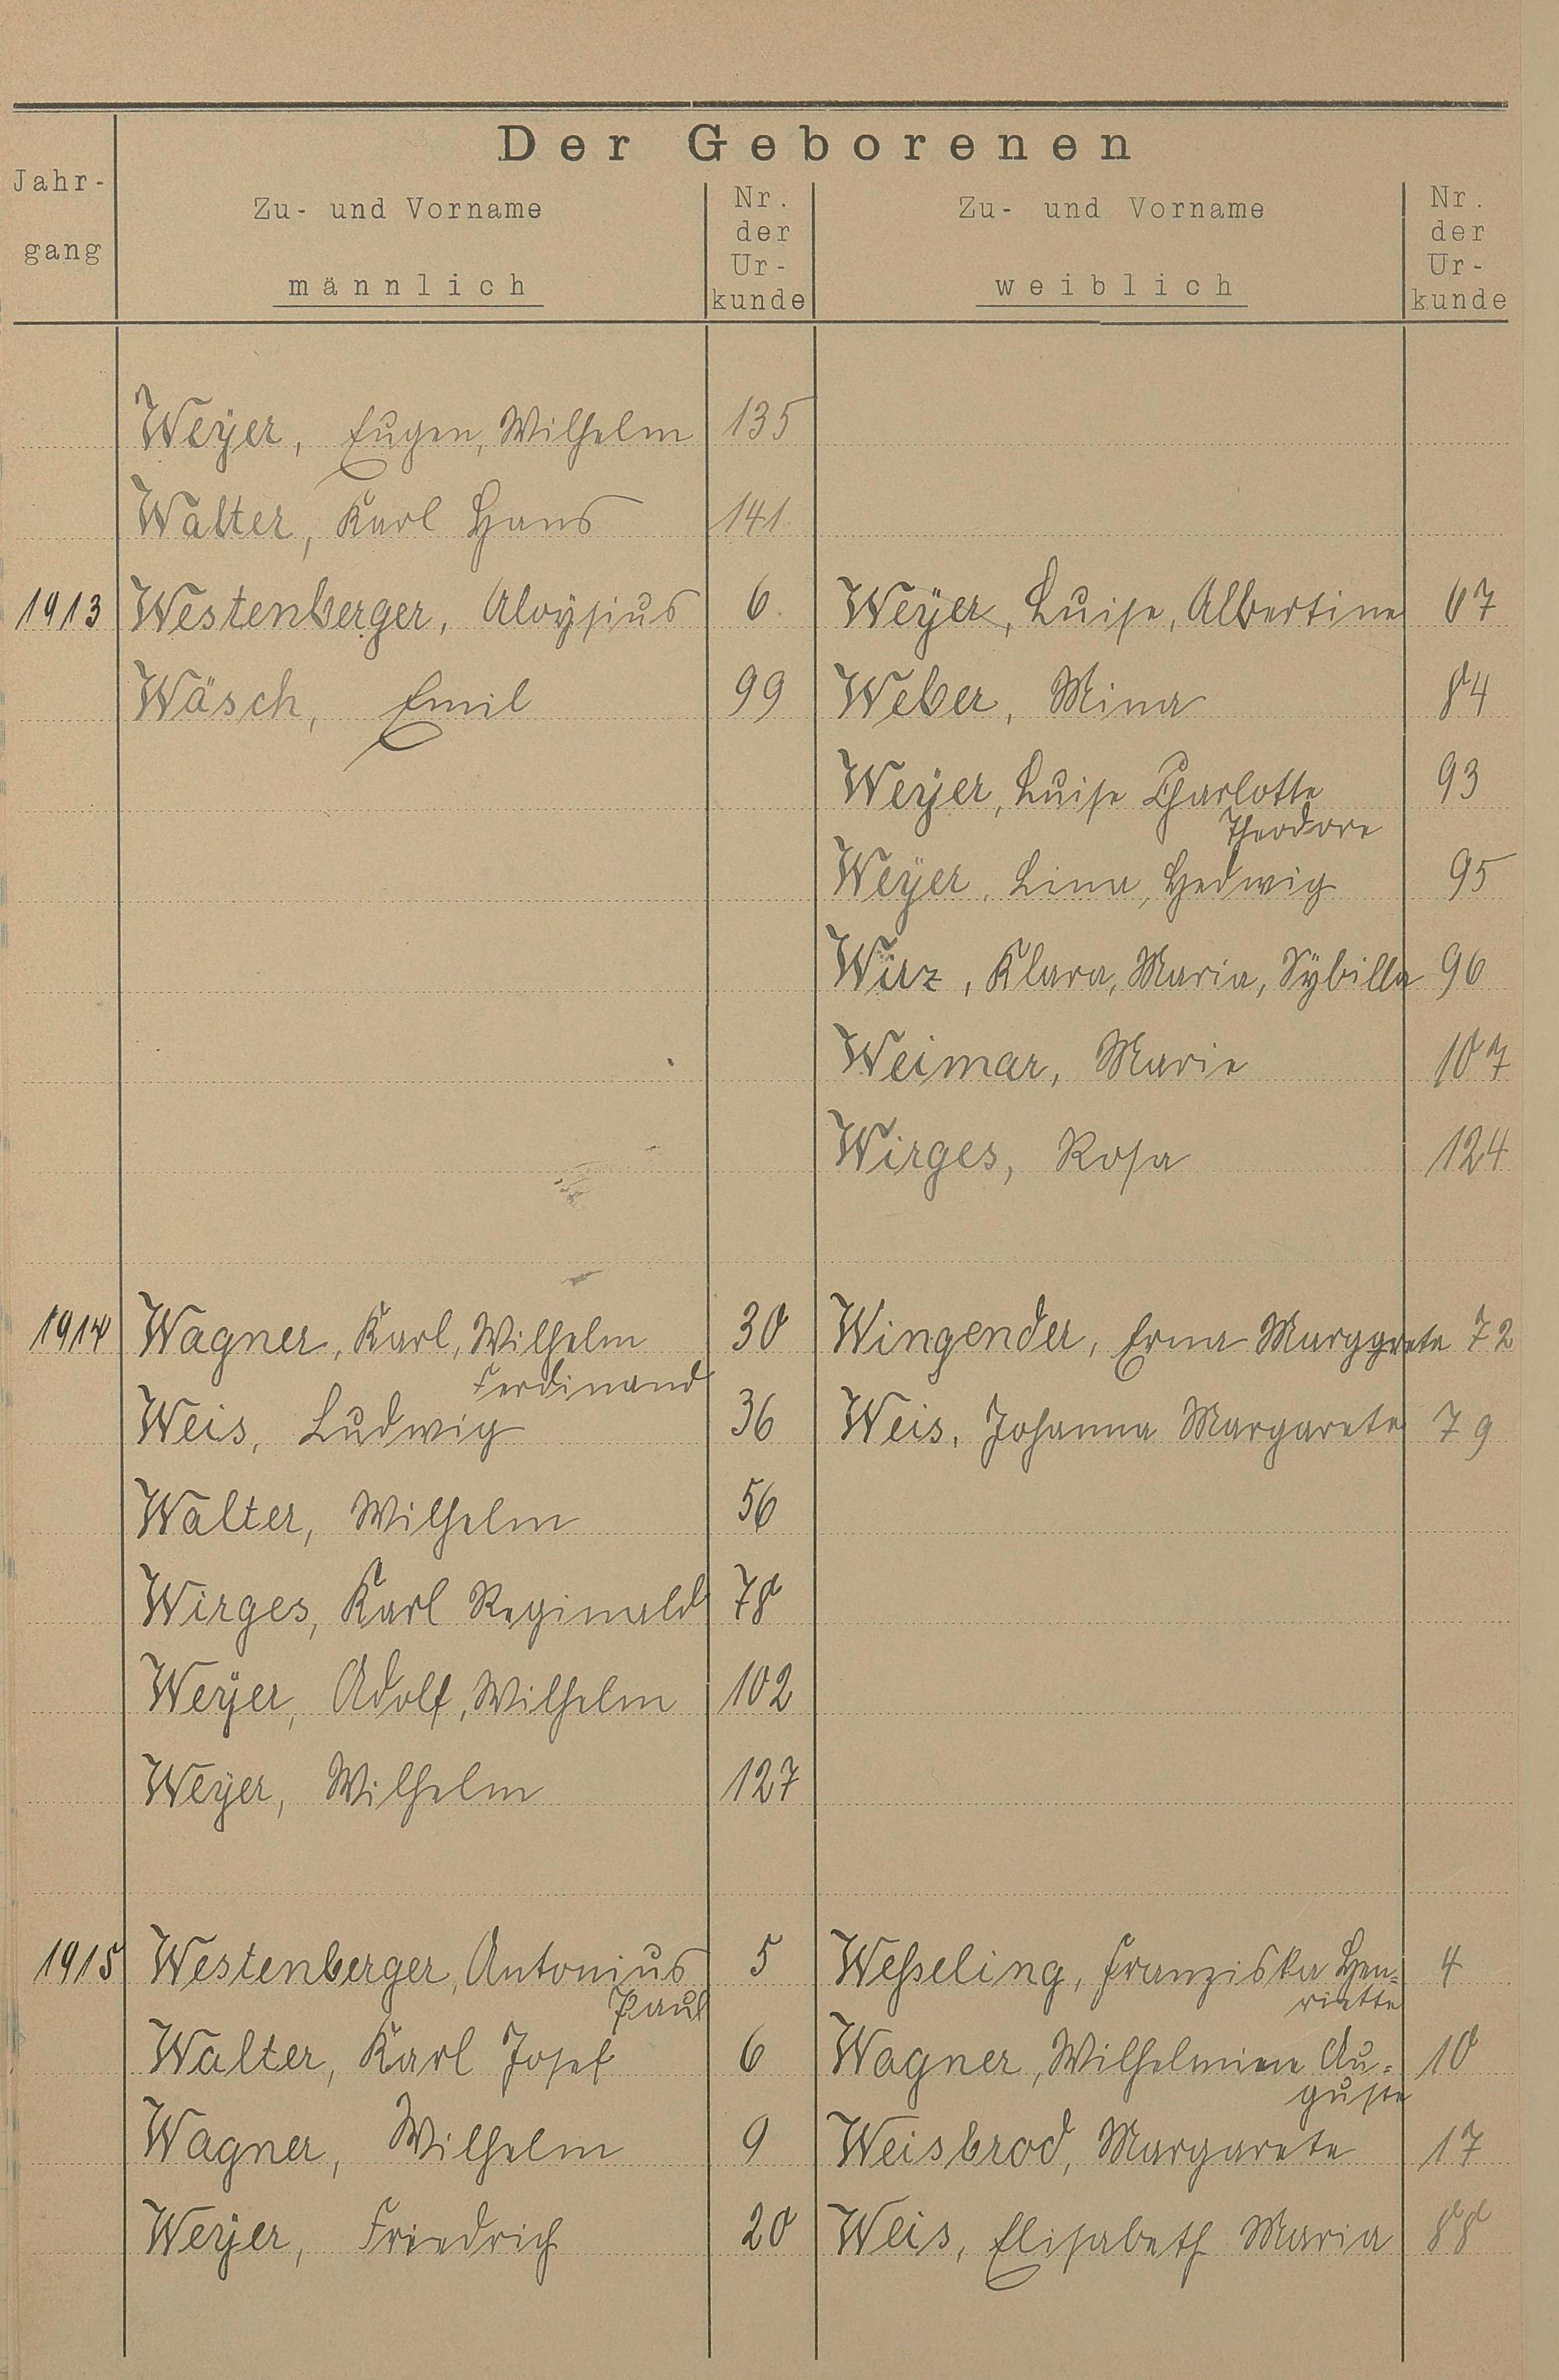 Der Geborenen
Jahr-
gang
Zu- und Vorname
männlich
Nr.
der
Ur-
kunde
Zu- und Vorname
weiblich
Nr.
der
Ur-
kunde
Weÿer, Eugen, Wilhelm 135
Walter, Karl Hans 141.
1913 Westenberger, Aloÿsius 6. Weÿer, Luise, Albertine 67
Wäsch, Emil 99 Weber, Mina 84
Weÿer, Luise Charlotte 93
Theodore
Weÿer, Lina, Hedwig 95
Wirz, Klara, Maria, Sÿbilla 96
Weimar, Marie 107
Wirges, Rosa 124
1914 Wagner, Karl, Wilhelm 30 Wingender, Erna Marggrete 72
Ferdinand
Weis, Ludwig 36 Weis, Johanna Margarete 79
Walter, Wilhelm 56
Wirges, Karl Reginald 78
Weÿer, Adolf, Wilhelm 102
Weÿer, Wilhelm 127
1915 Westenberger, Antonius 5 Weßeling, Franziska Hen= 4
Paul riette
Walter, Karl Josef 6 Wagner, Wilhelmine Au= 10
guste
Wagner, Wilhelm 9 Weisbrod, Margarete 17
Weÿer, Friedrich 20 Weis, Elisabeth Maria 88